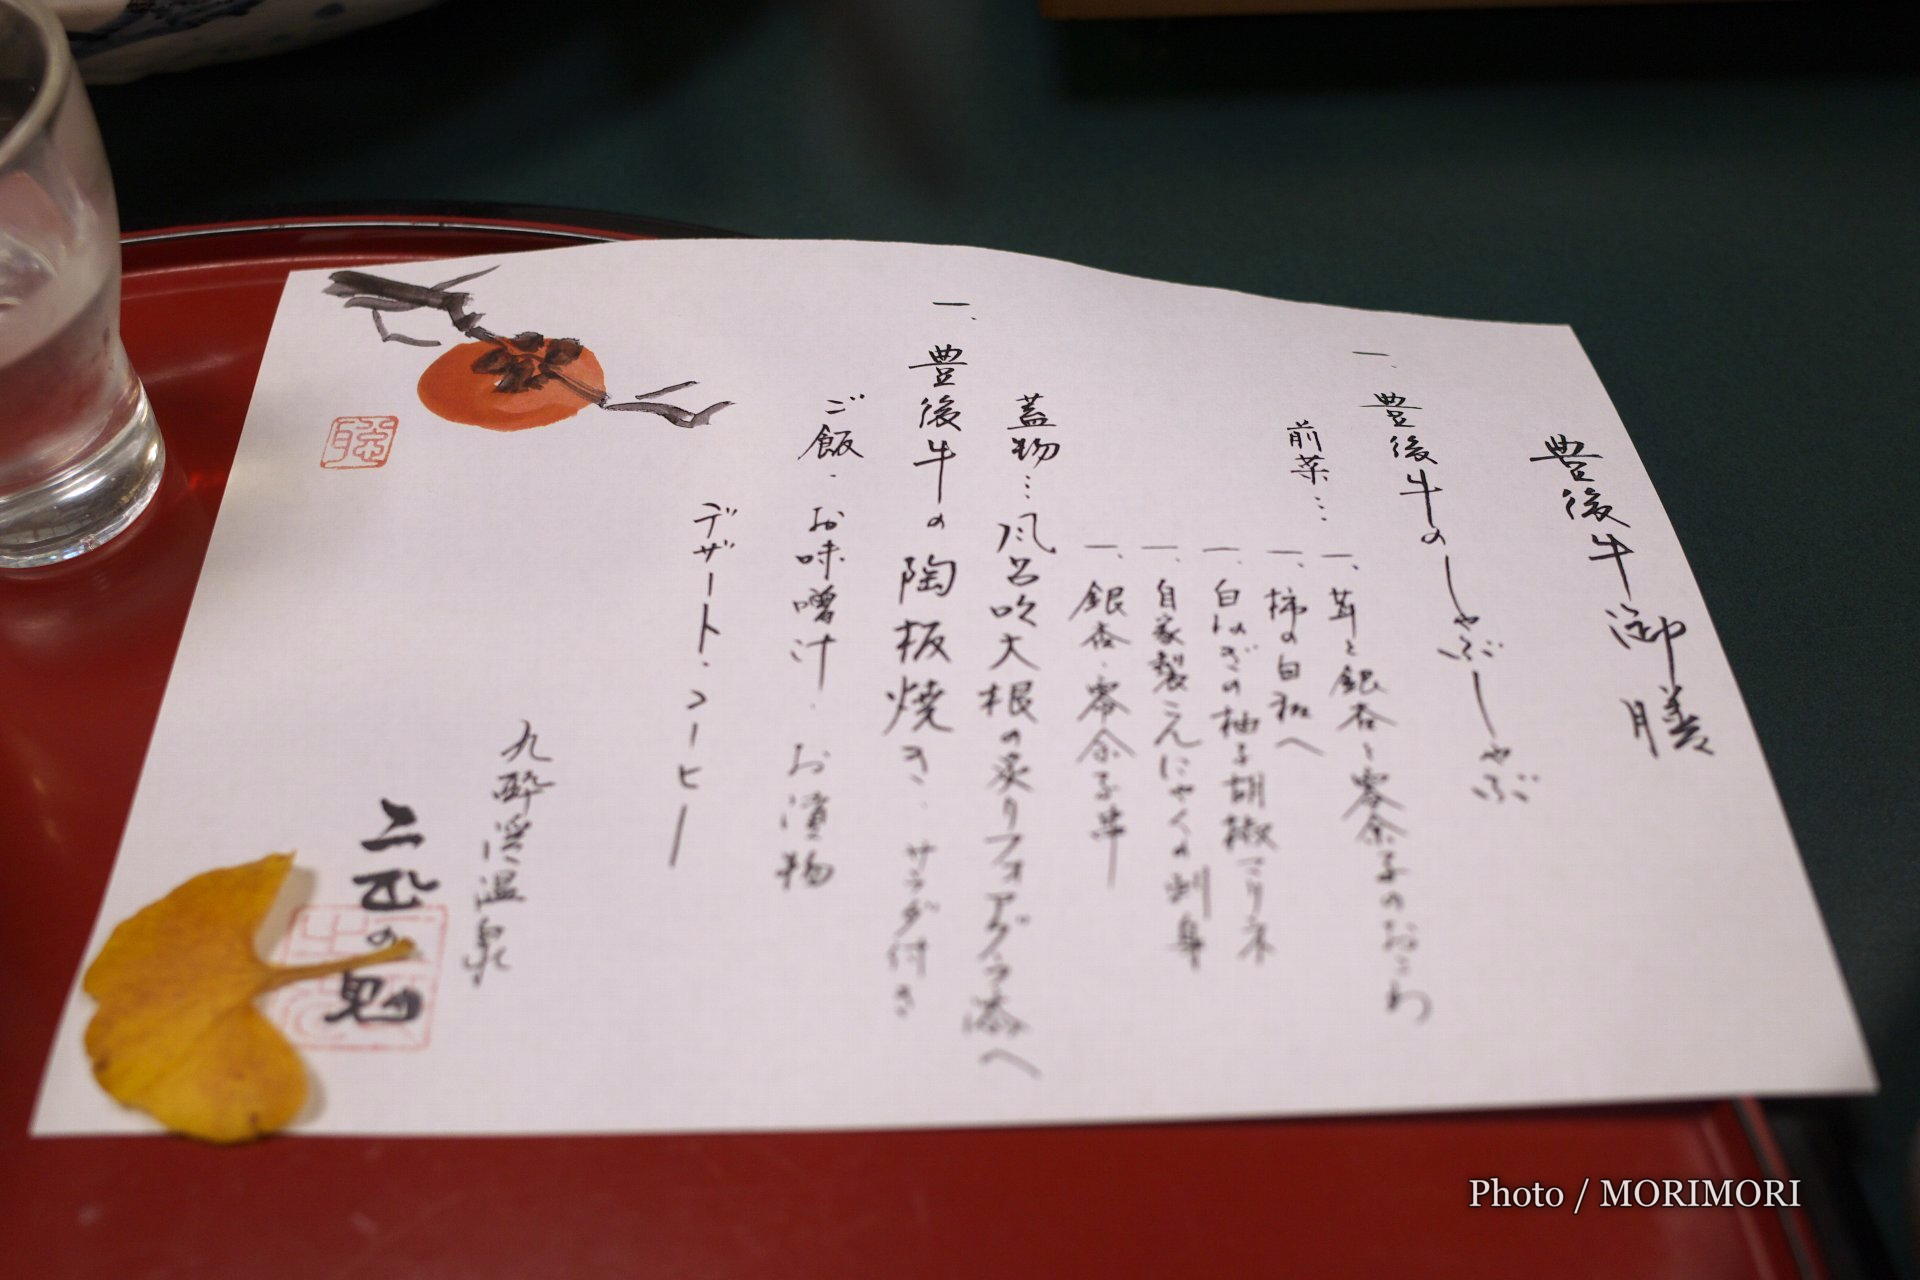 豊後牛御膳
一、豊後牛のしゃぶしゃぶ
前菜…
一、茸と銀杏と零余子のおこわ
一、柿の白和へ
一、白ねぎの柚子胡椒マリネ
一、自家製こんにゃくの刺身
一、銀杏・零余子串
蓋物…風呂吹大根の炙りフォアグラ添へ
一、豊後牛の陶板焼き、サラダ付き
ご飯・お味噌汁・お漬物
デザート・コーヒー
九酔渓温泉
二匹の鬼
Photo / MORIMORI